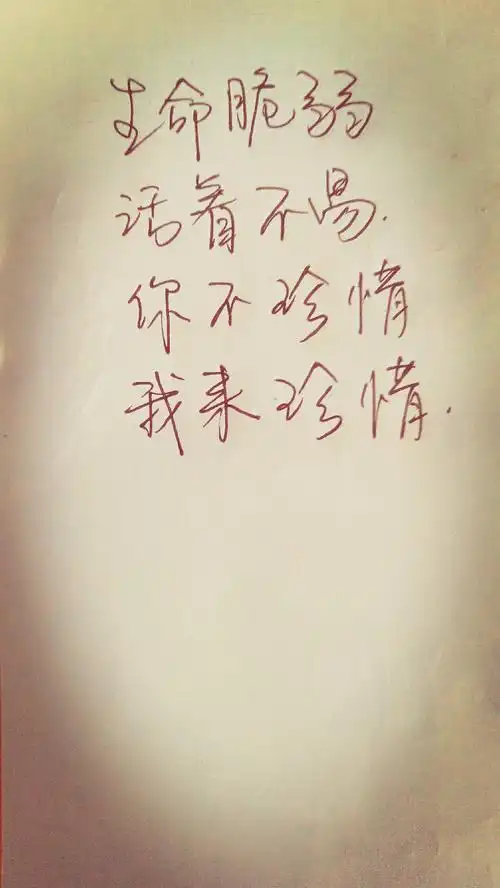 生命脆弱
活着不易.
你不珍惜
我来珍惜.